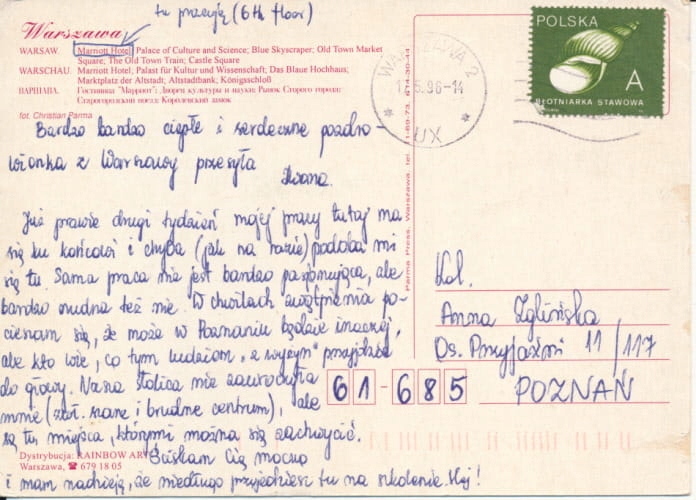 tu pracuję (6th floor)
Warszawa
WARSAW. Marriott Hotel; Palace of Culture and Science; Blue Skyscraper; Old Town Market
Square; The Old Town Train; Castle Square
WARSCHAU. Marriott Hotel; Palast für Kultur und Wissenschaft; Das Blaue Hochhaus;
Marktplatz der Altstadt; Altstadtbank; Königsschloß
ВАРШАВА. Гостиница "Марриот"; Дворец культуры и науки; Рынок Старого города;
Старогородский поезд; Королевский замок
fot. Christian Parma
Bardzo bardzo ciepłe i serdeczne pozdro-
wionka z Warszawy przesyła
Iwona.
Już prawie drugi tydzień mojej pracy tutaj ma
się ku końcowi i chyba (jak na razie) podoba mi
się tu. Sama praca nie jest bardzo pasjonująca, ale
bardzo nudna też nie. W chwilach zwątpienia po-
cieszam się, że może w Poznaniu będzie inaczej,
ale kto wie, co tym ludziom „z wyżyn" przyjdzie
do głowy. Nasza stolica nie zauroczyła
mnie (zat. szare i brudne centrum), ale
są tu miejsca, którymi można się zachwycić.
Ściskam Cię mocno
i mam nadzieję, że niedługo przyjedziesz tu na szkolenie. Hej!
Dystrybucja: RAINBOW ART
Warszawa, ☎ 679 18 05
Parma Press, Warszawa, tel. 1-69-73, 674-30-44
WARSZAWA 2
5.96-14
UX
POLSKA
A
BŁOTNIARKA STAWOWA
Kol.
Anna Zglińska
Os. Przyjaźni 11/117
61-685 POZNAŃ